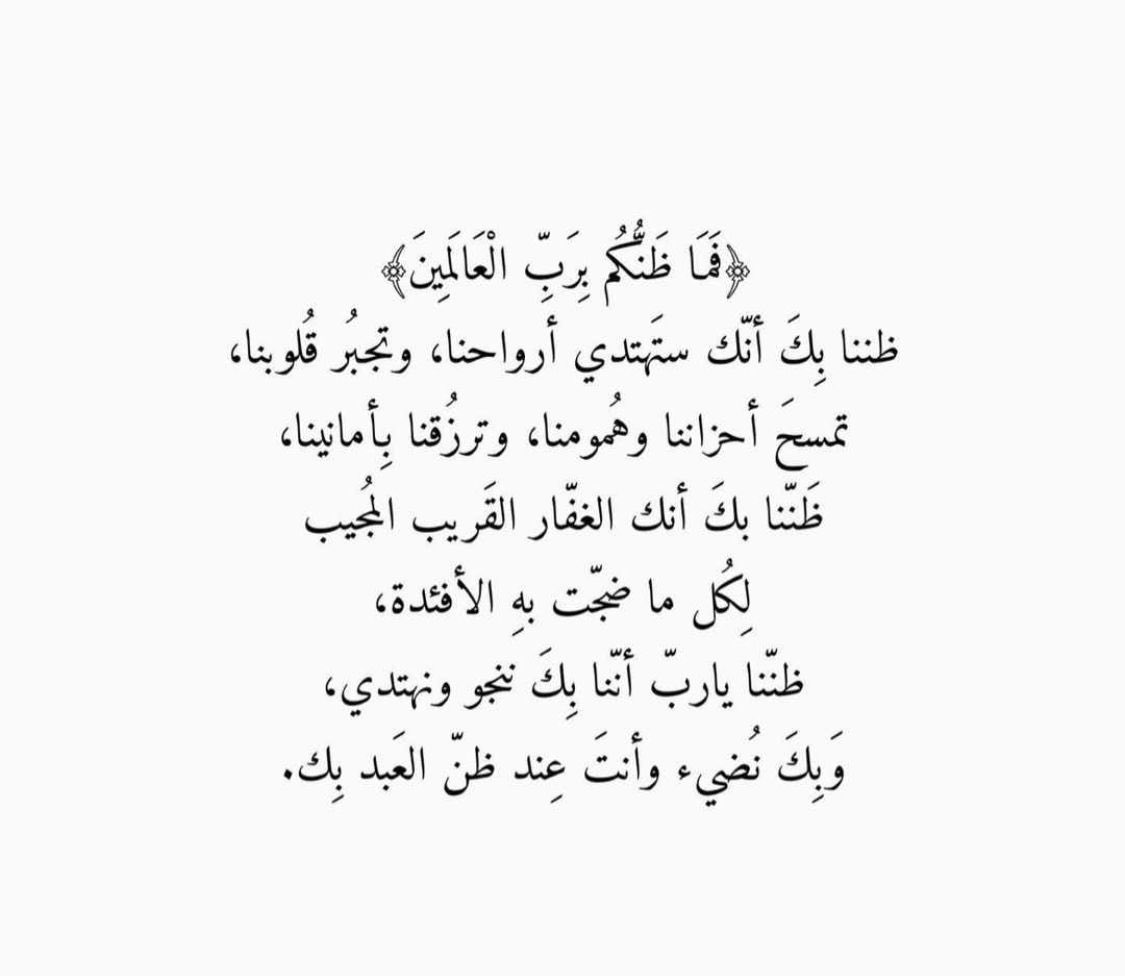 ﴿فَمَا ظَنُّكُم بِرَبِّ الْعَالَمِينَ﴾
ظننا بِكَ أنّك ستَهتدي أرواحنا، وتجبُر قُلوبنا،
تمسحَ أحزاننا وهُمومنا، وترزُقنا بِأمانينا،
ظَنّنا بكَ أنك الغفّار القَريب المُجيب
لِكُل ما ضجّت بهِ الأفئدة،
ظنّنا ياربّ أنّنا بِكَ ننجو ونهتدي،
وَبِكَ نُضيء وأنتَ عِند ظنّ العَبد بِك.